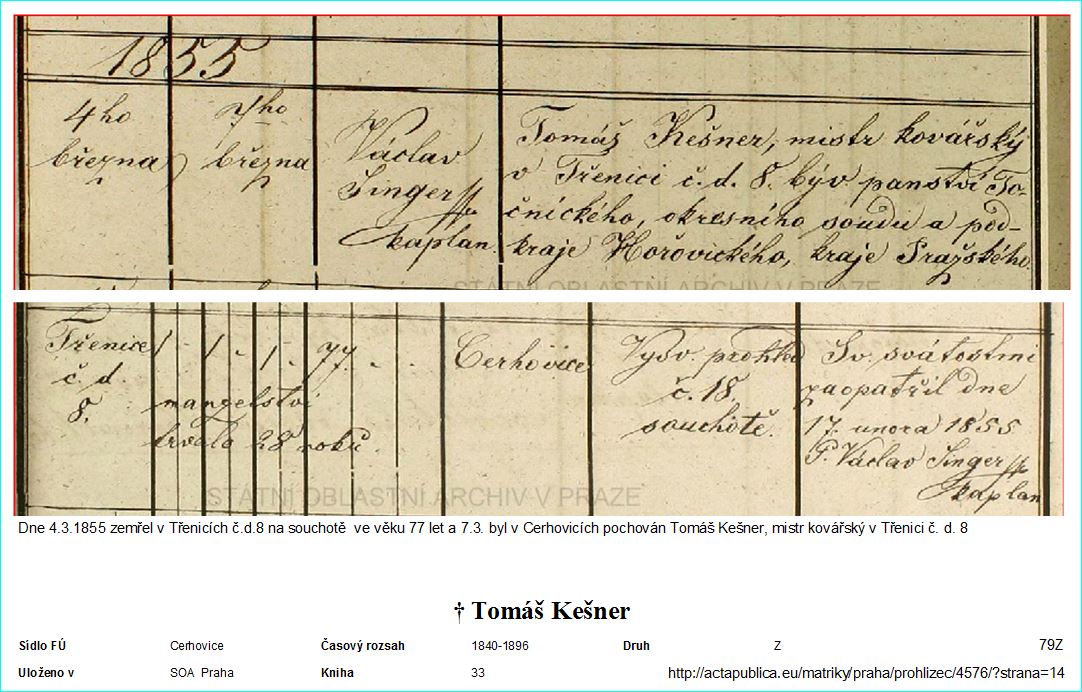 1855
4ho
března
7ho
března
Václav
Singer
kaplan.
Tomáš Kešner, mistr kovářský
v Třenici č. d. 8. býv. panství To-
čnického, okresního soudu a pod-
kraje Hořovického, kraje Pražského.
STÁTNÍ OBLASTNÍ ARCHIV V PRAZE
Třenice
č. d.
8.
1 - 1 - 1 - 77 - -
manželství
trvalo 28 roků.
Cerhovice
Vysv. prohled
č. 18.
souchotě.
Sv. svátostmi
zaopatřil dne
17. února 1855
P. Václav Singer
kaplan
STÁTNÍ OBLASTNÍ ARCHIV V PRAZE
Dne 4.3.1855 zemřel v Třenicích č.d.8 na souchotě ve věku 77 let a 7.3. byl v Cerhovicích pochován Tomáš Kešner, mistr kovářský v Třenici č. d. 8
† Tomáš Kešner
Sídlo FÚ Cerhovice Časový rozsah 1840-1896 Druh Z 79Z
Uloženo v SOA Praha Kniha 33 http://actapublica.eu/matriky/praha/prohlizec/4576/?strana=14